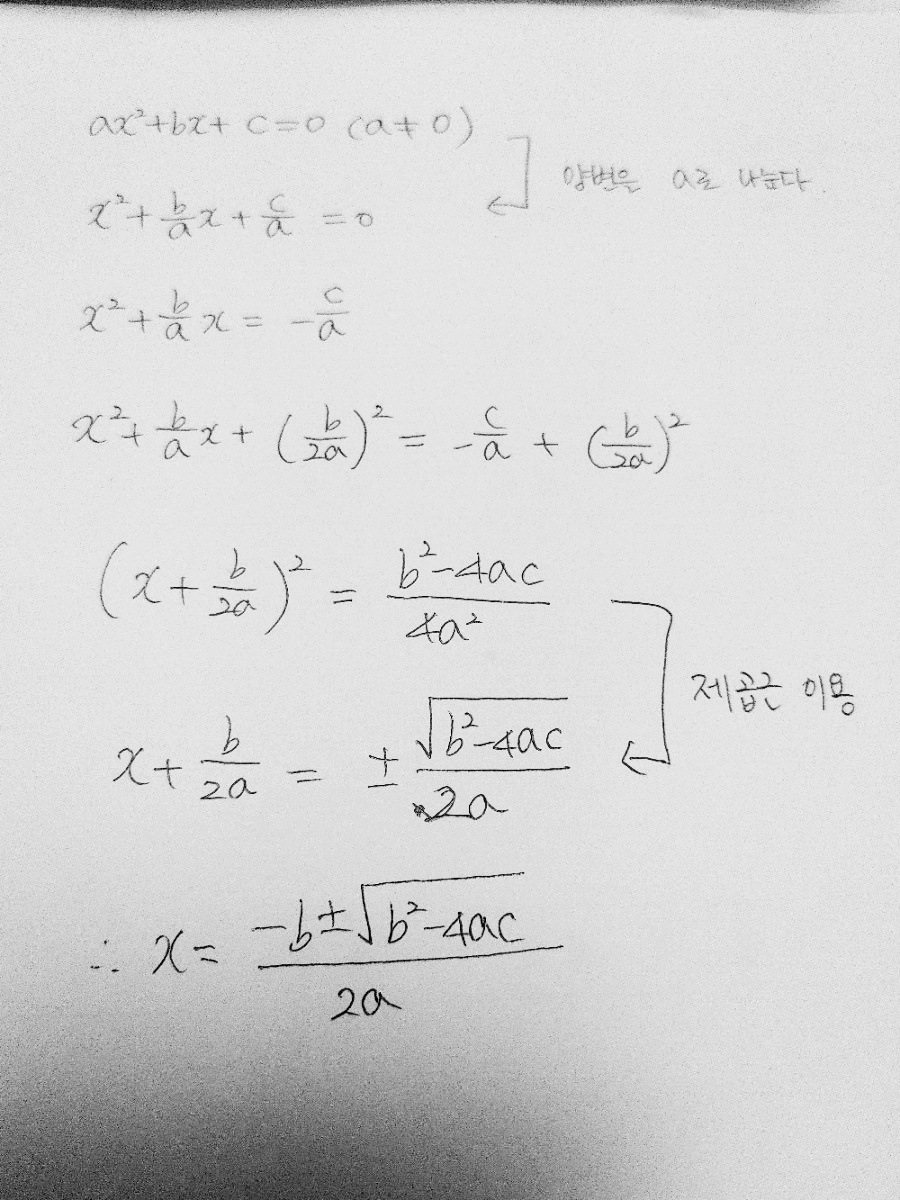 ax²+bx+c=0 (a≠0)
양변을 a로 나눈다.
x²+b/a x+c/a=0
x²+b/a x=-c/a
x²+b/a x+(b/2a)²=-c/a+(b/2a)²
(x+b/2a)²=b²-4ac/4a²
제곱근 이용
x+b/2a=±√b²-4ac/2a
∴ x=-b±√b²-4ac/2a